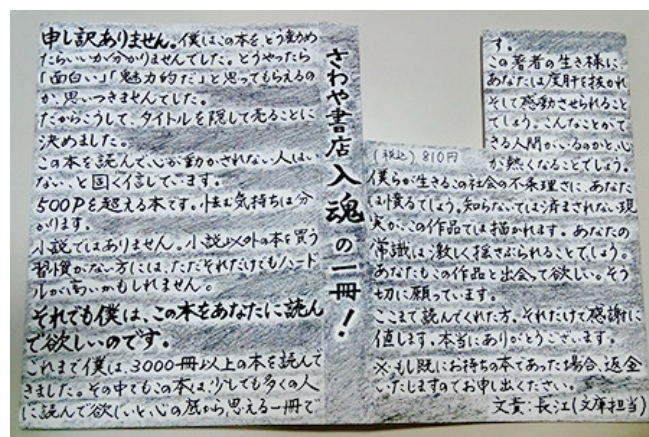 申し訳ありません。僕はこの本を、どう勧め
たらいいか分かりませんでした。どうやったら
「面白い」「魅力的だ」と思ってもらえるの
か、思いつきませんでした。
だからこうして、タイトルを隠して売ることに
決めました。
この本を読んで、心が動かされない人はい
ない、と固く信じています。
500Pを超える本です。怯む気持ちは分
かります。
小説ではありません。小説以外の本を買う
習慣がない方には、ただそれだけでもハード
ルが高いかもしれません。
それでも僕は、この本をあなたに読ん
で欲しいのです。
これまで僕は、3000冊以上の本を読んで
きました。その中でもこの本は、少しでも多くの人
に読んで欲しいと、心の底から思える一冊で
さわや書店入魂の一冊!
す。
この著者の生き様に、
あなたは度肝を抜かれ
そして感動させられること
でしょう。こんなことがで
きる人間がいるのかと、心
が熱くなることでしょう。
(税込)810円
僕らが生きるこの社会の不条理さに、あなた
は憤るでしょう。知らないでは済まされない現
実が、この作品では描かれます。あなたの
常識は激しく揺さぶられることでしょう。
あなたもこの作品と出会って欲しい。そう
切に願っています。
ここまで読んでくれた方。それだけで感謝に
値します。本当にありがとうございます。
※もし既にお持ちの本であった場合、返金
いたしますのでお申し出ください。
文責:長江(文庫担当)